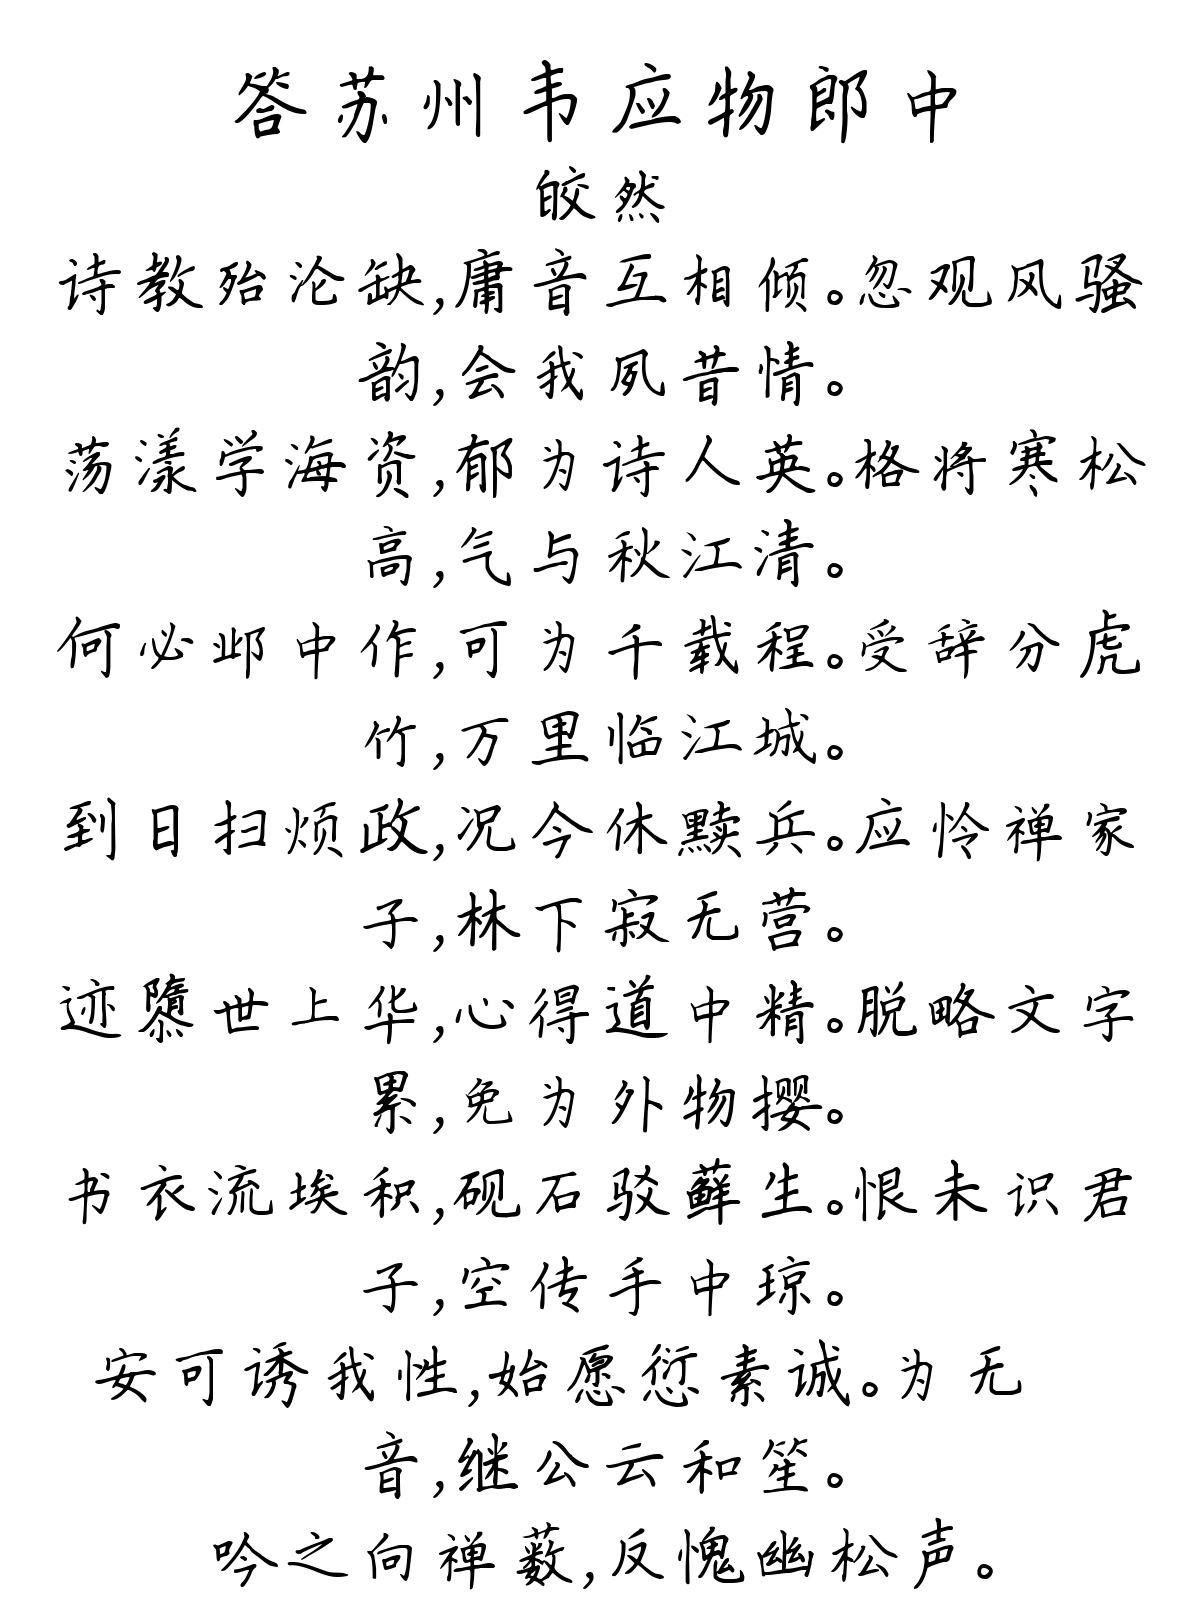 答苏州韦应物郎中
皎然
诗教殆沦缺,庸音互相倾。忽观风骚
韵,会我夙昔情。
荡漾学海资,郁为诗人英。格将寒松
高,气与秋江清。
何必邺中作,可为千载程。受辞分虎
竹,万里临江城。
到日扫烦政,况今休黩兵。应怜禅家
子,林下寂无营。
迹隳世上华,心得道中精。脱略文字
累,免为外物撄。
书衣流埃积,砚石驳藓生。恨未识君
子,空传手中琼。
安可诱我性,始愿愆素诚。为无
音,继公云和笙。
吟之向禅薮,反愧幽松声。